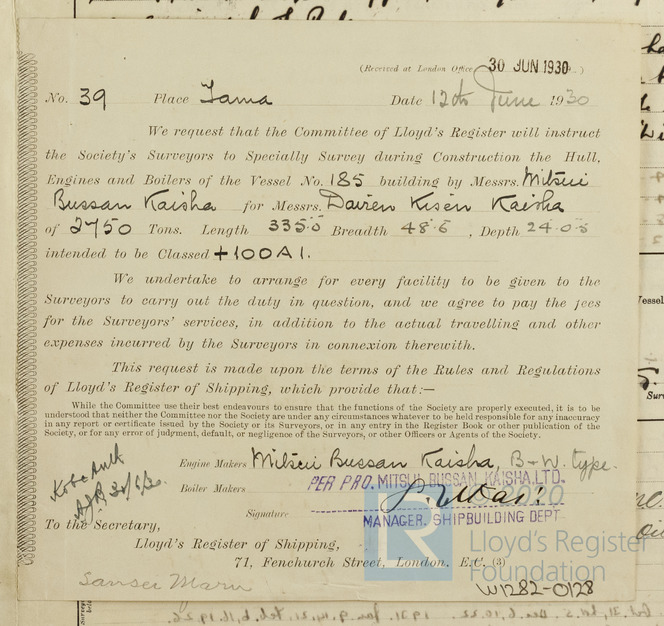 (Received at London Office 30 JUN 1930 .)
No. 39 Place Tama Date 12th June 1930
We request that the Committee of Lloyd's Register will instruct
the Society's Surveyors to Specially Survey during Construction the Hull,
Engines and Boilers of the Vessel No. 185 building by Messrs. Mitsui
Bussan Kaisha for Messrs. Dairen Kisen Kaisha
of 2750 Tons. Length 335.5 Breadth 48.6 , Depth 24.0
intended to be Classed +100A1.
We undertake to arrange for every facility to be given to the
Surveyors to carry out the duty in question, and we agree to pay the fees
for the Surveyors' services, in addition to the actual travelling and other
expenses incurred by the Surveyors in connexion therewith.
This request is made upon the terms of the Rules and Regulations
of Lloyd's Register of Shipping, which provide that:—
While the Committee use their best endeavours to ensure that the functions of the Society are properly executed, it is to be
understood that neither the Committee nor the Society are under any circumstances whatever to be held responsible for any inaccuracy
in any report or certificate issued by the Society or its Surveyors, or in any entry in the Register Book or other publication of the
Society, or for any error of judgment, default, or negligence of the Surveyors, or other Officers or Agents of the Society.
Engine Makers Mitsui Bussan Kaisha, B+W. type.
Boiler Makers PER PRO. MITSUI BUSSAN KAISHA. LTD.
Signature
MANAGER. SHIPBUILDING DEPT
To the Secretary,
Lloyd's Register of Shipping,
71, Fenchurch Street, London, E.C. (3)
Sansei Maru
Lloyd's Register
Foundation
W1282-0128